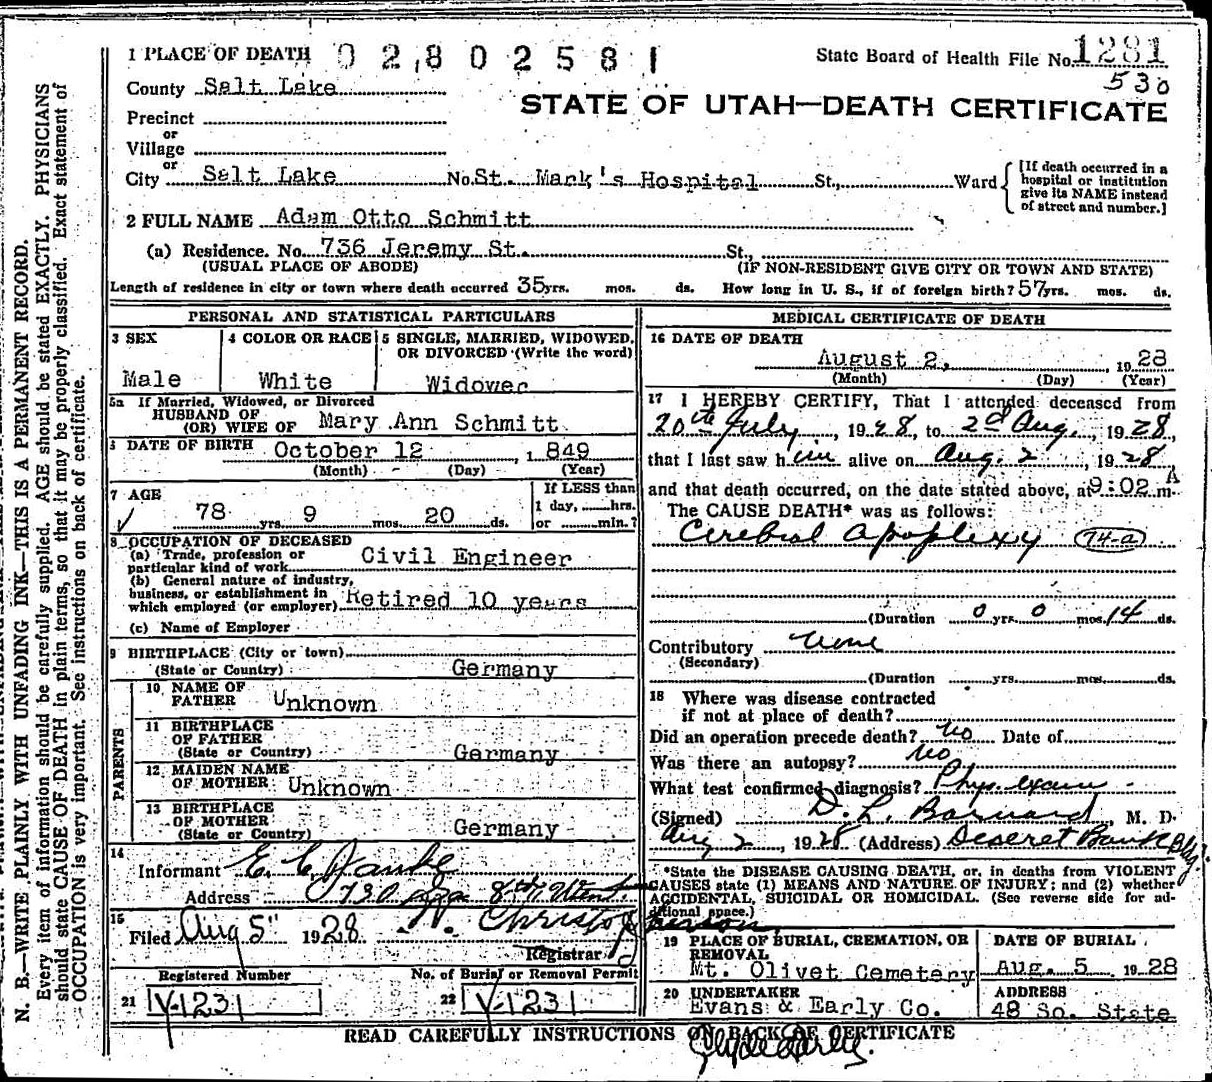 1 PLACE OF DEATH 02802581
State Board of Health File No. 1281
530
County Salt Lake
STATE OF UTAH—DEATH CERTIFICATE
Precinct
or
Village
or
City Salt Lake No. St. Mark's Hospital St., Ward
[If death occurred in a
hospital or institution
give its NAME instead
of street and number.]
2 FULL NAME Adam Otto Schmitt
(a) Residence. No. 736 Jeremy St. St.,
(USUAL PLACE OF ABODE) (IF NON-RESIDENT GIVE CITY OR TOWN AND STATE)
Length of residence in city or town where death occurred 35 yrs. mos. ds. How long in U. S., if of foreign birth? 57 yrs. mos. ds.
PERSONAL AND STATISTICAL PARTICULARS
3 SEX
Male
4 COLOR OR RACE
White
5 SINGLE, MARRIED, WIDOWED,
OR DIVORCED (Write the word)
Widower
5a If Married, Widowed, or Divorced
HUSBAND OF
(OR) WIFE OF Mary Ann Schmitt
6 DATE OF BIRTH October 12, 1849
(Month) (Day) (Year)
7 AGE
78 yrs. 9 mos. 20 ds.
If LESS than
1 day, hrs.
or min.?
8 OCCUPATION OF DECEASED
(a) Trade, profession or
particular kind of work Civil Engineer
(b) General nature of industry,
business, or establishment in
which employed (or employer) Retired 10 years
(c) Name of Employer
9 BIRTHPLACE (City or town)
(State or Country) Germany
PARENTS
10 NAME OF
FATHER Unknown
11 BIRTHPLACE
OF FATHER
(State or Country) Germany
12 MAIDEN NAME
OF MOTHER Unknown
13 BIRTHPLACE
OF MOTHER
(State or Country) Germany
14
Informant E. C.
Address 730
15
Filed Aug 5" 1928
Registrar
Registered Number No. of Burial or Removal Permit
21 Y-1231 22 Y-1231
MEDICAL CERTIFICATE OF DEATH
16 DATE OF DEATH
August 2, 1928
(Month) (Day) (Year)
17 I HEREBY CERTIFY, That I attended deceased from
20th July, 1928, to 2d Aug., 1928,
that I last saw him alive on Aug. 2, 1928
and that death occurred, on the date stated above, at 9:02 A m.
The CAUSE DEATH* was as follows:
Cerebral Apoplexy 74-a
(Duration 0 yrs. 0 mos. 14 ds.
Contributory None
(Secondary)
(Duration yrs. mos. ds.
18 Where was disease contracted
if not at place of death?
Did an operation precede death? No Date of
Was there an autopsy? No
What test confirmed diagnosis? Phys. exam
(Signed) D. L. Barnard, M. D.
Aug 2, 1928 (Address) Deseret Bank Bldg.
*State the DISEASE CAUSING DEATH, or, in deaths from VIOLENT
CAUSES state (1) MEANS AND NATURE OF INJURY; and (2) whether
ACCIDENTAL, SUICIDAL OR HOMICIDAL. (See reverse side for ad-
ditional space.)
19 PLACE OF BURIAL, CREMATION, OR
REMOVAL
Mt. Olivet Cemetery
DATE OF BURIAL
Aug. 5 1928
20 UNDERTAKER
Evans & Early Co.
ADDRESS
48 So. State
READ CAREFULLY INSTRUCTIONS ON BACK OF CERTIFICATE
N. B.—WRITE PLAINLY WITH UNFADING INK—THIS IS A PERMANENT RECORD.
Every item of information should be carefully supplied. AGE should be stated EXACTLY. PHYSICIANS
should state CAUSE OF DEATH in plain terms, so that it may be properly classified. Exact statement of
OCCUPATION is very important. See instructions on back of certificate.